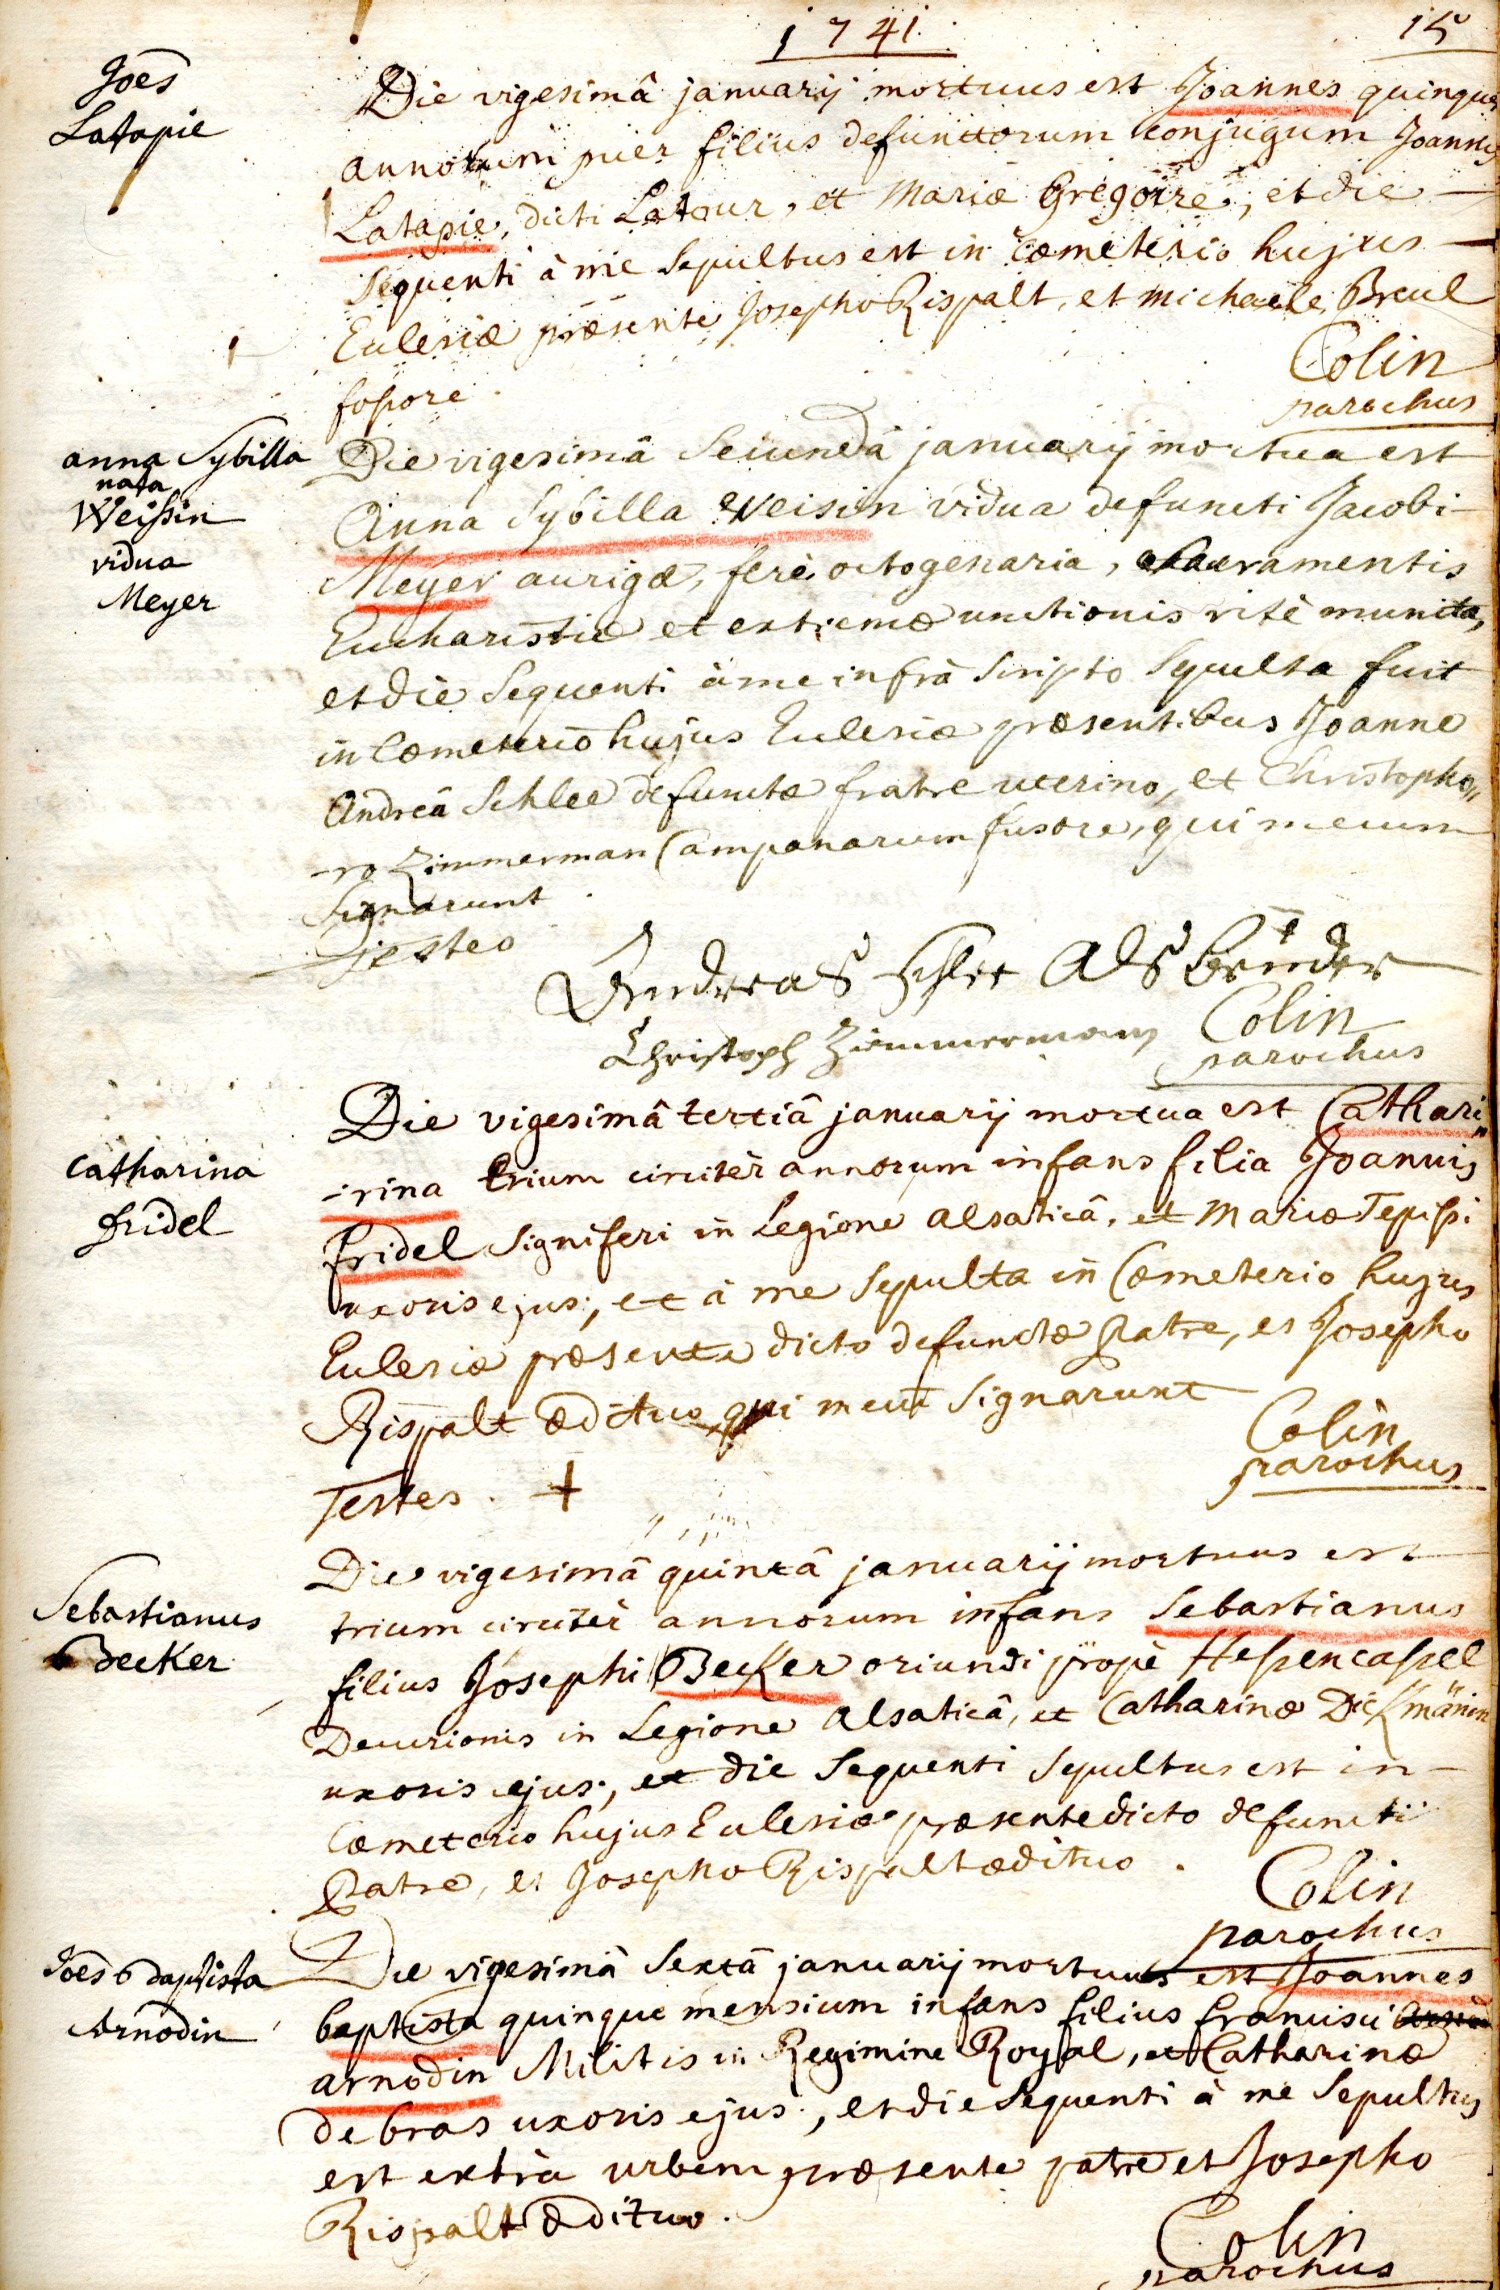 1741. 15
Joēs
Latapie
Die vigesimâ januarij mortuus est Joannes quinque
annorum puer filius defunctorum conjugum Joannis
Latapie, dicti Latour, et Mariæ Gregoire, et die
sequenti à me sepultus est in cœmeterio hujus
Ecclesiæ præsente Josepho Rispalt, et michaele Breul
fossore.
Colin
parochus
anna Sybilla
nata
Weissin
vidua
Meyer
Die vigesimâ secundâ januarij mortua est
Anna Sybilla Weisin vidua defuncti Jacobi
Meyer aurigæ, ferè octogenaria, sacramentis
Eucharistiæ et extremæ unctionis ritè munita,
et die sequenti à me infrà scripto sepulta fuit
in Cœmeterio hujus Ecclesiæ præsentibus Joanne
Andreâ Schlee defunctæ fratre uterino, et Christopho
-ro Zimmerman Campanarum fusore, qui mecum
signarunt
Andreas Schlee Als Brüder
Christoph Zimmermann
Colin
parochus
catharina
fridel
Die vigesimâ tertiâ januarij mortua est Cathari
-rina trium circitèr annorum infans filia Joannis
fridel signiferi in Legione alsaticâ, et Mariæ Tepissi
uxoris ejus; et à me sepulta in Cœmeterio hujus
Ecclesiæ præsente dicto defunctæ Patre, et Josepho
Rispalt ædituo qui mecū signarunt
Testes. +
Colin
parochus
Sebastianus
Becker
Die vigesimâ quintâ januarij mortuus est
trium circitèr annorum infans Sebastianus
filius Josephi Becker oriundi propè Hessencassel
Decurionis in Legione alsaticâ, et Catharinæ Dickmänin
uxoris ejus; et die sequenti sepultus est in
Cœmeterio hujus Ecclesiæ præsente dicto defuncti
Patre, et Josepho Rispalt ædituo.
Colin
parochus
Joēs Baptista
Arnodin
Die vigesimâ sextâ januarij mortuus est Joannes
baptista quinque mensium infans filius francisci
arnodin Militis in Regimine Royal, et Catharinæ
debras uxoris ejus; et die sequenti à me sepultus
est extrà urbem præsente patre et Josepho
Rispalt Ædituo.
Colin
parochus